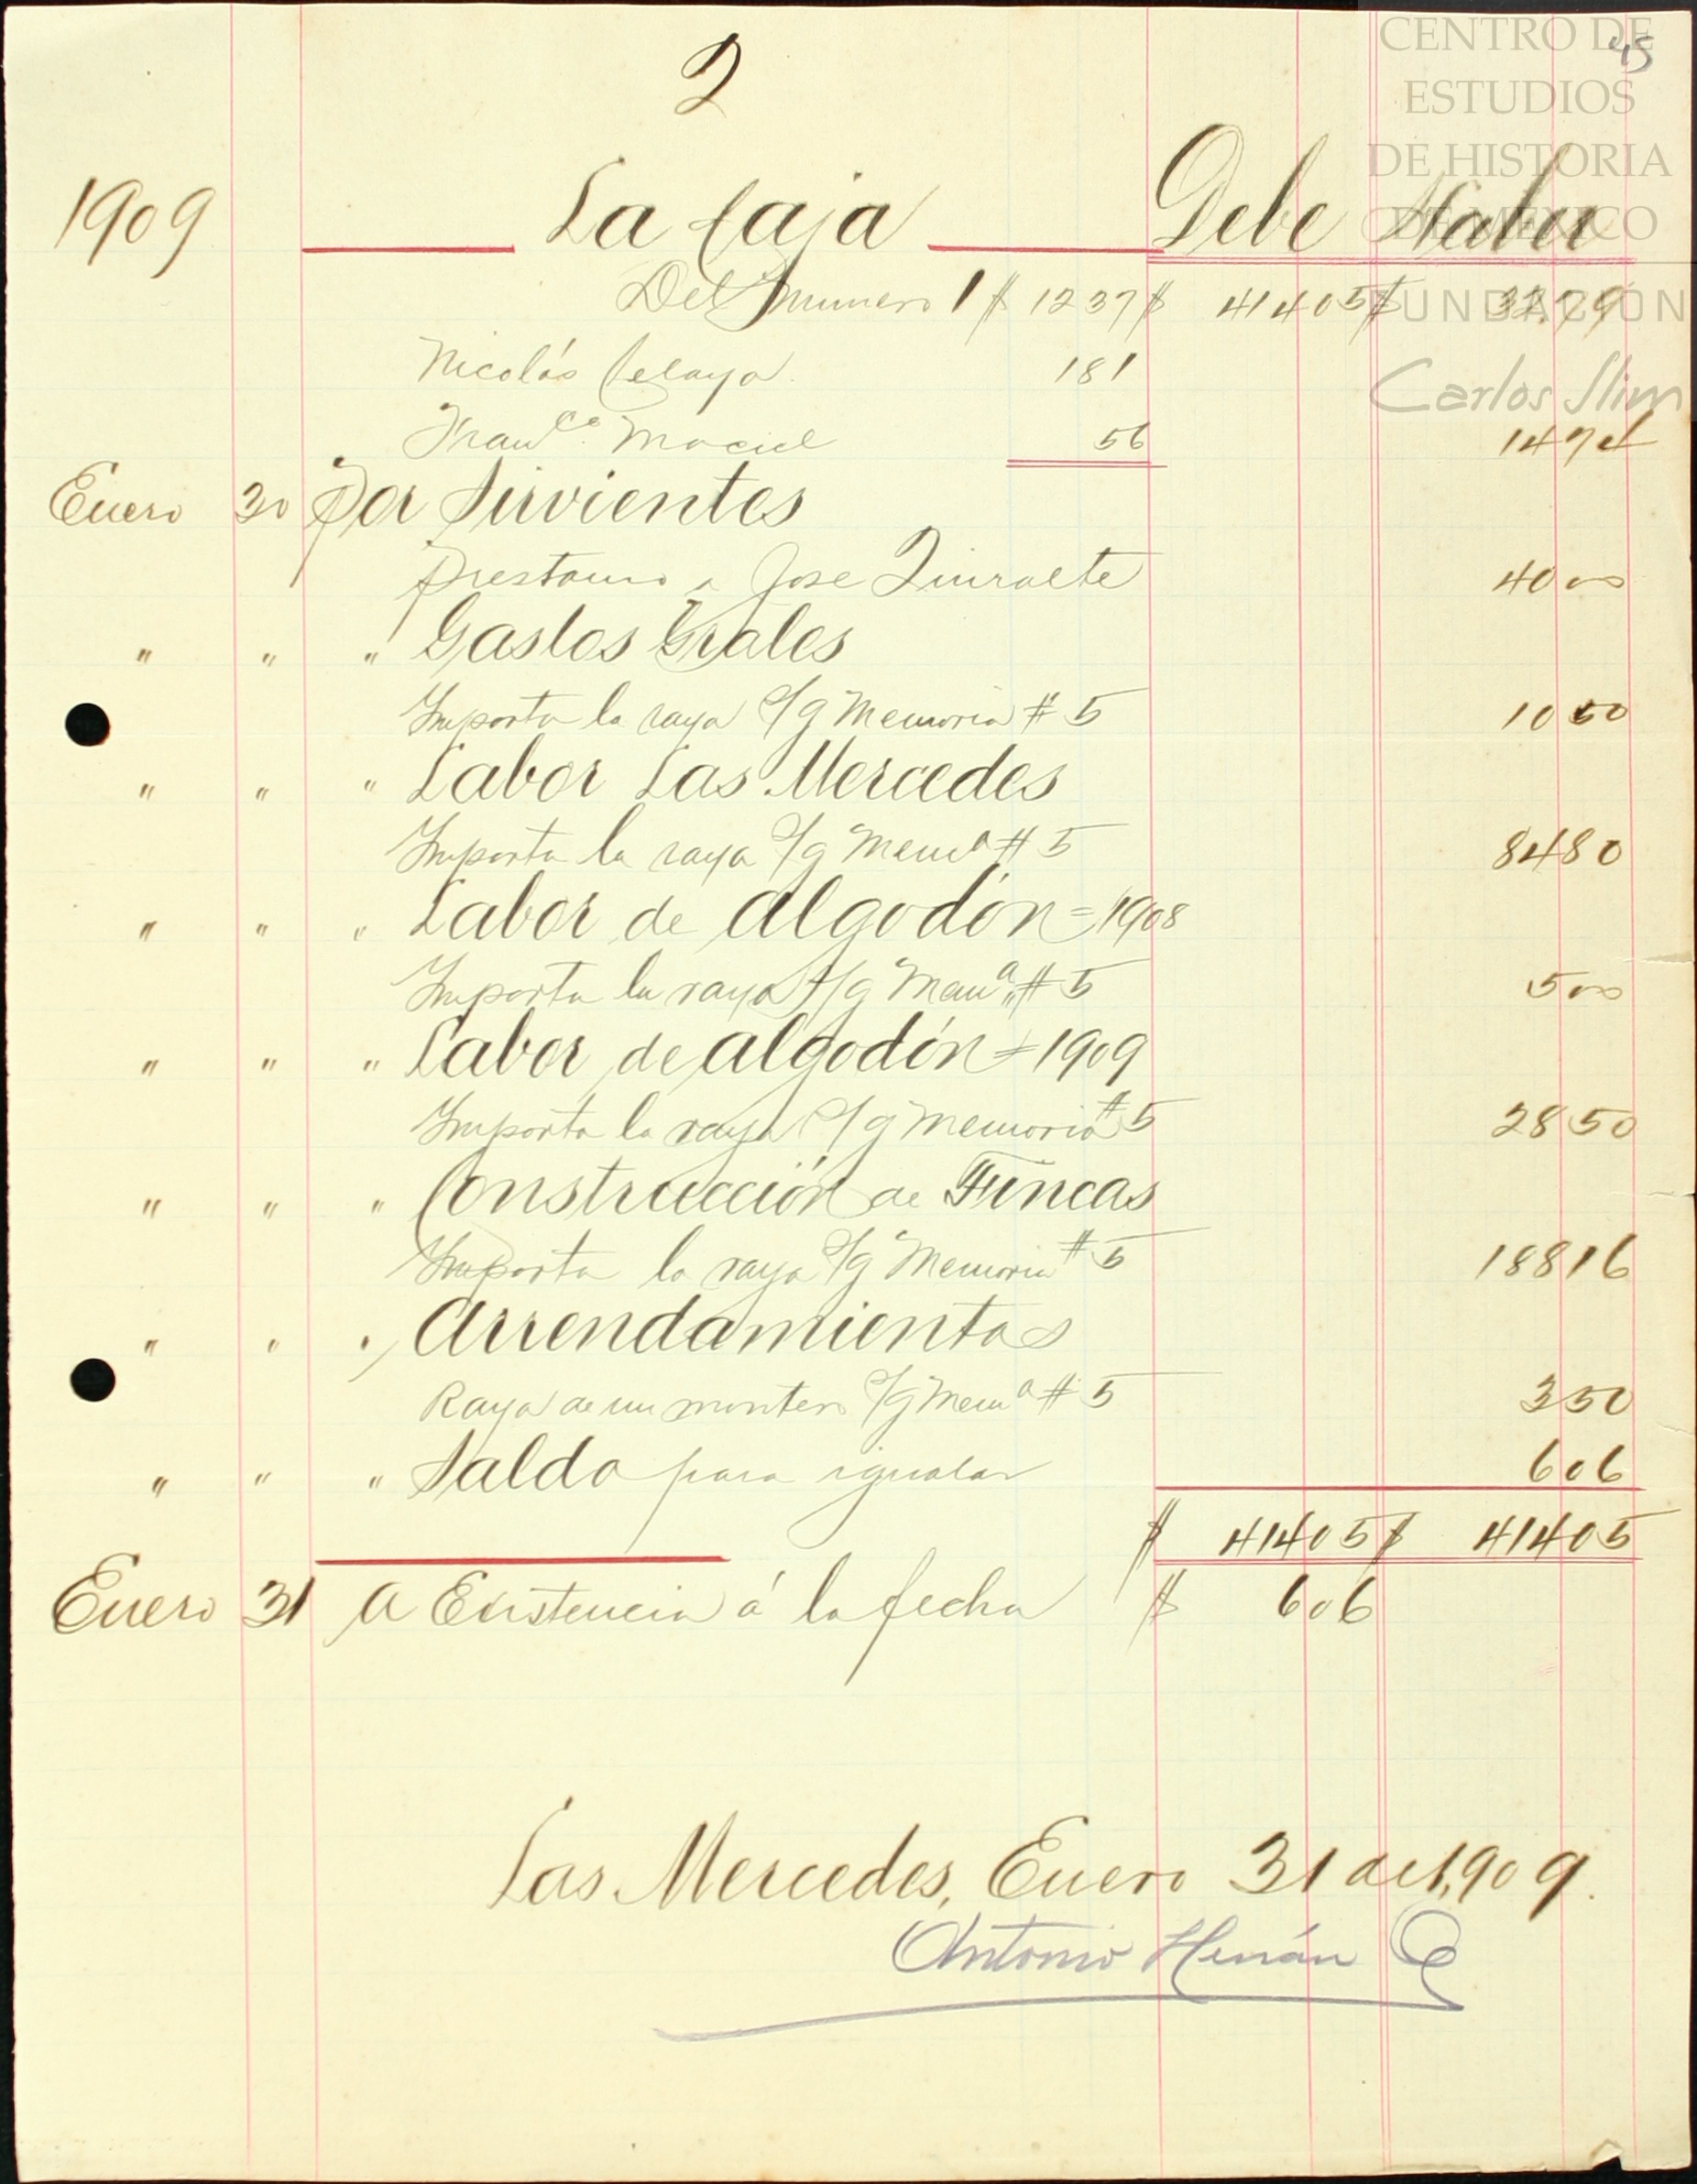 45
CENTRO DE
ESTUDIOS
DE HISTORIA
DE MÉXICO
FUNDACIÓN
Carlos Slim
2
1909 La Caja Debe Haber
Del número 1 $ 12 37 $ 414 05 $ 32 79
Nicolás Celaya. 1 81
Franco. Maciel 56 14 74
Enero 30 Por Sirvientes
Prestamo a Jose 40 00
" " " Gastos Grales
Importa la raya s/g Memoria # 5 10 50
" " " Labor Las Mercedes
Importa la raya s/g Mema # 5 84 80
" " " Labor de algodón = 1908
Importa la raya s/g Mema # 5 5 00
" " " Labor de algodón = 1909
Importa la raya s/g Memoria # 5 28 50
" " " Construcción de Fincas
Importa la raya s/g Memoria # 5 188 16
" " " Arrendamientos
Raya de un montero s/g Mema # 5 3 50
" " " Saldo para igualar 6 06
$ 414 05 $ 414 05
Enero 31 A Existencia á la fecha $ 6 06
Las Mercedes, Enero 31 de 1,909.
Antonio